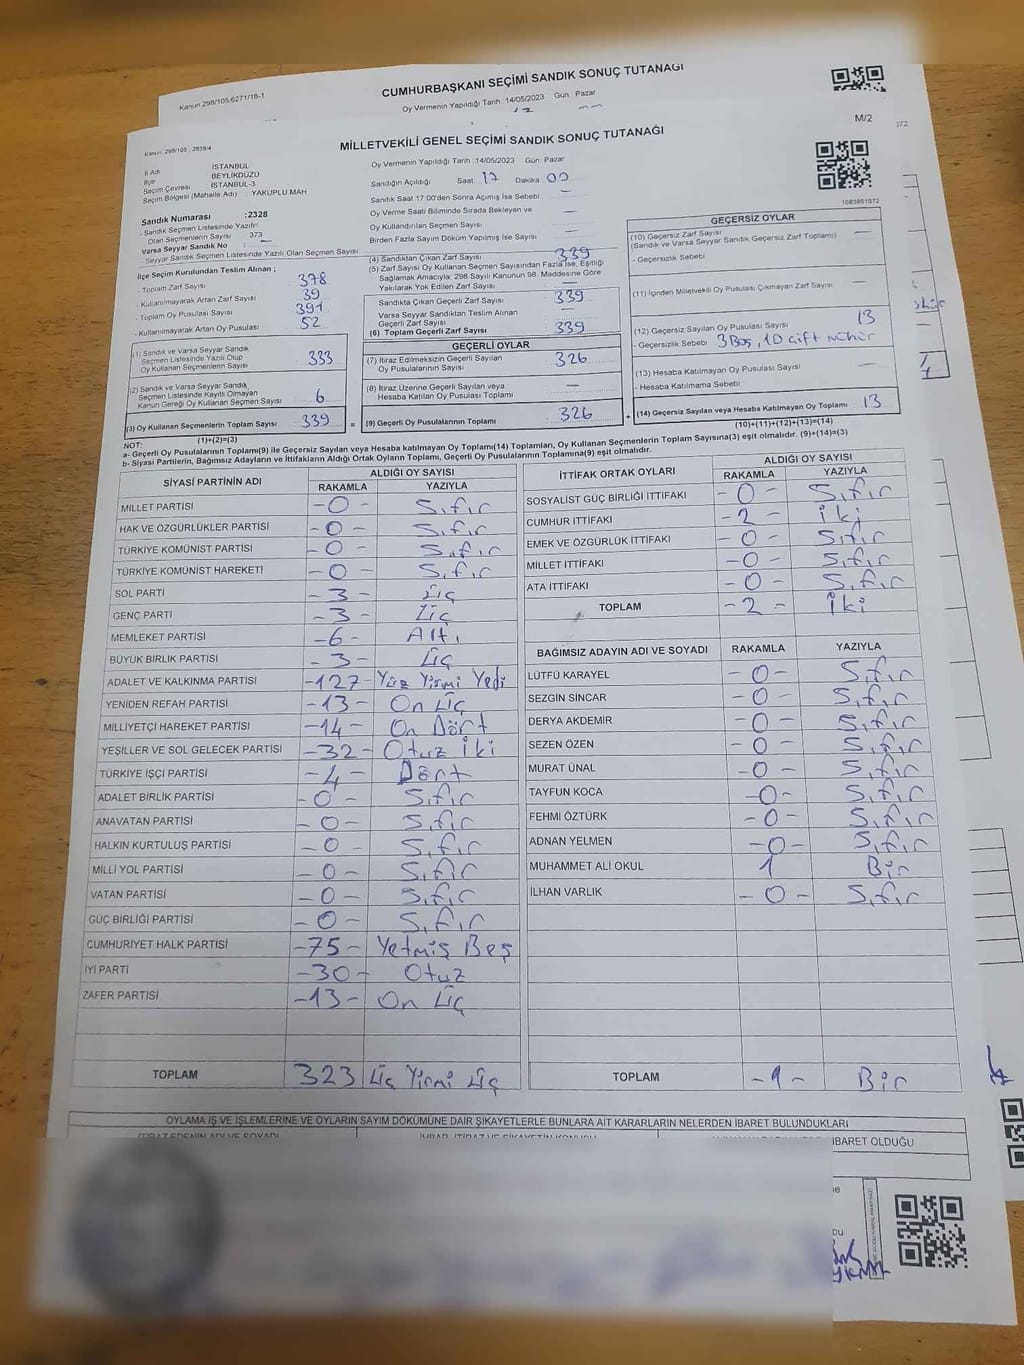 CUMHURBAŞKANI SEÇİMİ SANDIK SONUÇ TUTANAĞI
Kanun 298/105.6271/18-1
Oy Vermenin Yapıldığı Tarih :14/05/2023 Gün : Pazar
MİLLETVEKİLİ GENEL SEÇİMİ SANDIK SONUÇ TUTANAĞI
M/2
Kanun: 298/105 , 2839/4
İl Adı İSTANBUL
İlçe BEYLİKDÜZÜ
Seçim Çevresi İSTANBUL-3
Seçim Bölgesi (Mahalle Adı) YAKUPLU MAH
Sandık Numarası :2328
- Sandık Seçmen Listesinde Yazılı
Olan Seçmenlerin Sayısı 373
Varsa Seyyar Sandık No : —
- Seyyar Sandık Seçmen Listesinde Yazılı Olan Seçmen Sayısı
İlçe Seçim Kurulundan Teslim Alınan ;
- Toplam Zarf Sayısı 378
- Kullanılmayarak Artan Zarf Sayısı 39
- Toplam Oy Pusulası Sayısı 391
- Kullanılmayarak Artan Oy Pusulası 52
(1) Sandık ve Varsa Seyyar Sandık
Seçmen Listesinde Yazılı Olup
Oy Kullanan Seçmenlerin Sayısı 333
(2) Sandık ve Varsa Seyyar Sandık
Seçmen Listesinde Kayıtlı Olmayan
Kanun Gereği Oy Kullanan Seçmen Sayısı 6
(3) Oy Kullanan Seçmenlerin Toplam Sayısı 339
(1)+(2)=(3)
Oy Vermenin Yapıldığı Tarih :14/05/2023 Gün: Pazar
Sandığın Açıldığı Saat: 17 Dakika 00
Sandık Saat 17.00'den Sonra Açılmış İse Sebebi —
Oy Verme Saati Bitiminde Sırada Bekleyen ve
Oy Kullandırılan Seçmen Sayısı —
Birden Fazla Sayım Döküm Yapılmış İse Sayısı —
(4) Sandıktan Çıkan Zarf Sayısı 339
(5) Zarf Sayısı Oy Kullanan Seçmen Sayısından Fazla İse, Eşitliği
Sağlamak Amacıyla; 298 Sayılı Kanunun 98. Maddesine Göre
Yakılarak Yok Edilen Zarf Sayısı —
Sandıkta Çıkan Geçerli Zarf Sayısı 339
Varsa Seyyar Sandıktan Teslim Alınan
Geçerli Zarf Sayısı —
(6) Toplam Geçerli Zarf Sayısı 339
GEÇERLİ OYLAR
(7) İtiraz Edilmeksizin Geçerli Sayılan
Oy Pusulalarının Sayısı 326
(8) İtiraz Üzerine Geçerli Sayılan veya
Hesaba Katılan Oy Pusulaları Toplamı —
= (9) Geçerli Oy Pusulalarının Toplamı : 326
1083851072
GEÇERSİZ OYLAR
(10) Geçersiz Zarf Sayısı
(Sandık ve Varsa Seyyar Sandık Geçersiz Zarf Toplamı) —
- Geçersizlik Sebebi
(11) İçinden Milletvekili Oy Pusulası Çıkmayan Zarf Sayısı —
(12) Geçersiz Sayılan Oy Pusulası Sayısı 13
- Geçersizlik Sebebi 3 Boş, 10 çift mühür
(13) Hesaba Katılmayan Oy Pusulası Sayısı —
- Hesaba Katılmama Sebebi
+ (14) Geçersiz Sayılan veya Hesaba Katılmayan Oy Toplamı 13
(10)+(11)+(12)+(13)=(14)
NOT:
a- Geçerli Oy Pusulalarının Toplamı(9) ile Geçersiz Sayılan veya Hesaba katılmayan Oy Toplamı(14) Toplamları, Oy Kullanan Seçmenlerin Toplam Sayısına(3) eşit olmalıdır. (9)+(14)=(3)
b- Siyasi Partilerin, Bağımsız Adayların ve İttifakların Aldığı Ortak Oyların Toplamı, Geçerli Oy Pusulalarının Toplamına(9) eşit olmalıdır.
SİYASİ PARTİNİN ADI ALDIĞI OY SAYISI
RAKAMLA YAZIYLA
MİLLET PARTİSİ -0- Sıfır
HAK VE ÖZGÜRLÜKLER PARTİSİ -0- Sıfır
TÜRKİYE KOMÜNİST PARTİSİ -0- Sıfır
TÜRKİYE KOMÜNİST HAREKETİ -0- Sıfır
SOL PARTİ -3- Üç
GENÇ PARTİ -3- Üç
MEMLEKET PARTİSİ -6- Altı
BÜYÜK BİRLİK PARTİSİ -3- Üç
ADALET VE KALKINMA PARTİSİ -127- Yüz Yirmi Yedi
YENİDEN REFAH PARTİSİ -13- On Üç
MİLLİYETÇİ HAREKET PARTİSİ -14- On Dört
YEŞİLLER VE SOL GELECEK PARTİSİ -32- Otuz İki
TÜRKİYE İŞÇİ PARTİSİ -4- Dört
ADALET BİRLİK PARTİSİ -0- Sıfır
ANAVATAN PARTİSİ -0- Sıfır
HALKIN KURTULUŞ PARTİSİ -0- Sıfır
MİLLİ YOL PARTİSİ -0- Sıfır
VATAN PARTİSİ -0- Sıfır
GÜÇ BİRLİĞİ PARTİSİ -0- Sıfır
CUMHURİYET HALK PARTİSİ -75- Yetmiş Beş
İYİ PARTİ -30- Otuz
ZAFER PARTİSİ -13- On Üç
TOPLAM 323 Üç Yirmi Üç
İTTİFAK ORTAK OYLARI ALDIĞI OY SAYISI
RAKAMLA YAZIYLA
SOSYALİST GÜÇ BİRLİĞİ İTTİFAKI -0- Sıfır
CUMHUR İTTİFAKI -2- İki
EMEK VE ÖZGÜRLÜK İTTİFAKI -0- Sıfır
MİLLET İTTİFAKI -0- Sıfır
ATA İTTİFAKI -0- Sıfır
TOPLAM -2- İki
BAĞIMSIZ ADAYIN ADI VE SOYADI RAKAMLA YAZIYLA
LÜTFÜ KARAYEL -0- Sıfır
SEZGİN SİNCAR -0- Sıfır
DERYA AKDEMİR -0- Sıfır
SEZEN ÖZEN -0- Sıfır
MURAT ÜNAL -0- Sıfır
TAYFUN KOCA -0- Sıfır
FEHMİ ÖZTÜRK -0- Sıfır
ADNAN YELMEN -0- Sıfır
MUHAMMET ALİ OKUL 1 Bir
İLHAN VARLIK -0- Sıfır
TOPLAM -1- Bir
OYLAMA İŞ VE İŞLEMLERİNE VE OYLARIN SAYIM DÖKÜMÜNE DAİR ŞİKAYETLERLE BUNLARA AİT KARARLARIN NELERDEN İBARET BULUNDUKLARI
İBARET OLDUĞU